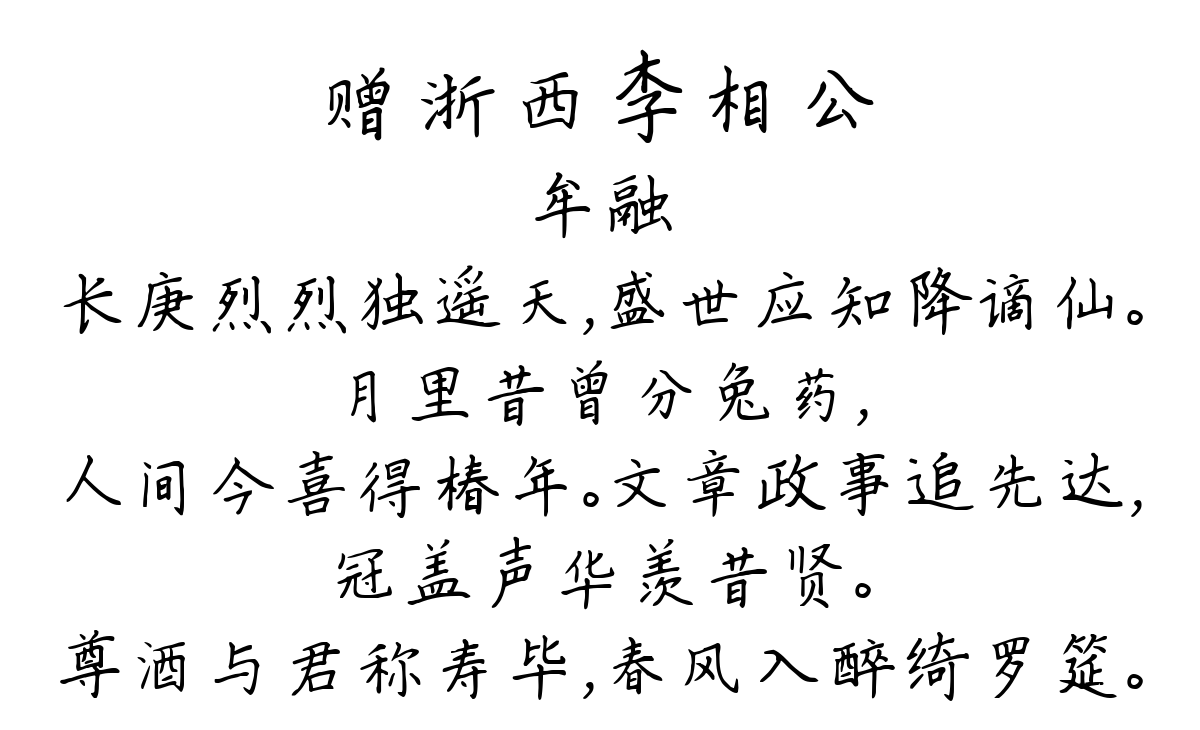 赠浙西李相公
牟融
长庚烈烈独遥天,盛世应知降谪仙。
月里昔曾分兔药,
人间今喜得椿年。文章政事追先达,
冠盖声华羡昔贤。
尊酒与君称寿毕,春风入醉绮罗筵。